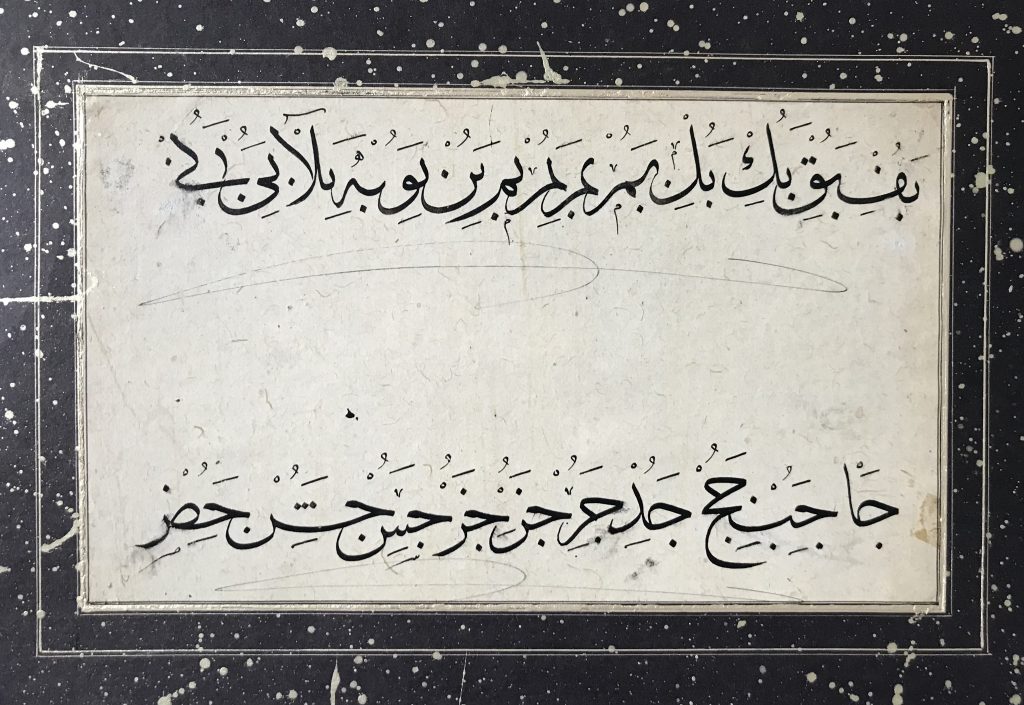 بف بق بك بل بم بم بم بم بن بن بو به بلا بى بى
جا جب جج جد جر جر جر جس جش جص